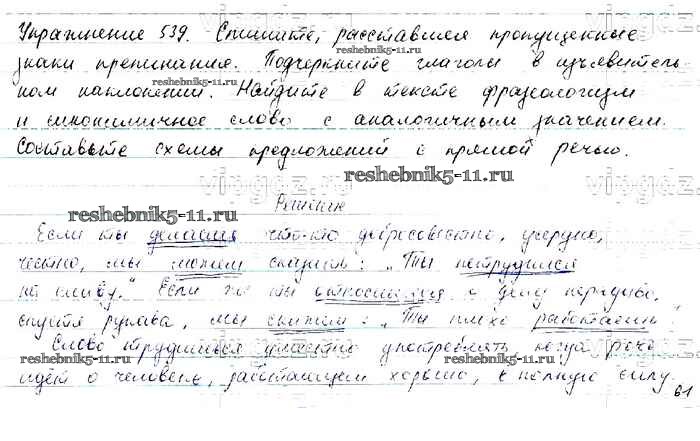 Упражнение 539. Спишите, расставляя пропущенные
reshebnik5-11.ru
знаки препинания. Подчеркните глаголы в изъявитель-
ном наклонении. Найдите в тексте фразеологизм
и синонимичное слово с аналогичным значением.
Составьте схемы предложений с прямой речью.
vipgdz.ru
reshebnik5-11.ru
reshebnik5-11.ru
Решение
Если ты делаешь что-то добросовестно, усердно,
честно, мы можем сказать: „Ты потрудился
на славу.“ Если же ты относишься к делу нерадиво,
спустя рукава, мы скажем: „Ты плохо работаешь.“
Слово трудишься уместно употреблять когда речь
reshebnik5-11.ru
reshebnik5-11.ru
идёт о человеке, работающем хорошо, в полную силу.
61